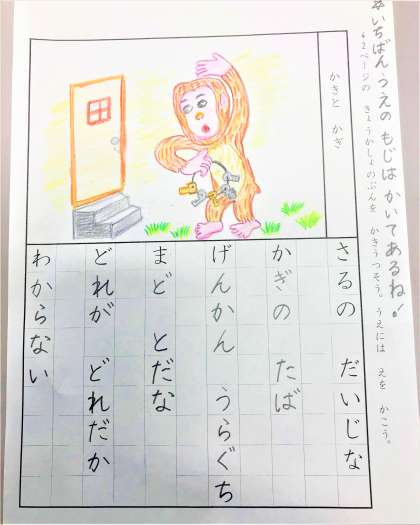 ☆いちばんうえの もじは かいてあるね!
42ページの きょうかしょのぶんを かきうつそう。うえには えを かこう。
かきと かぎ
さるの だいじな
かぎの たば
げんかん うらぐち
まど とだな
どれが どれだか
わからない